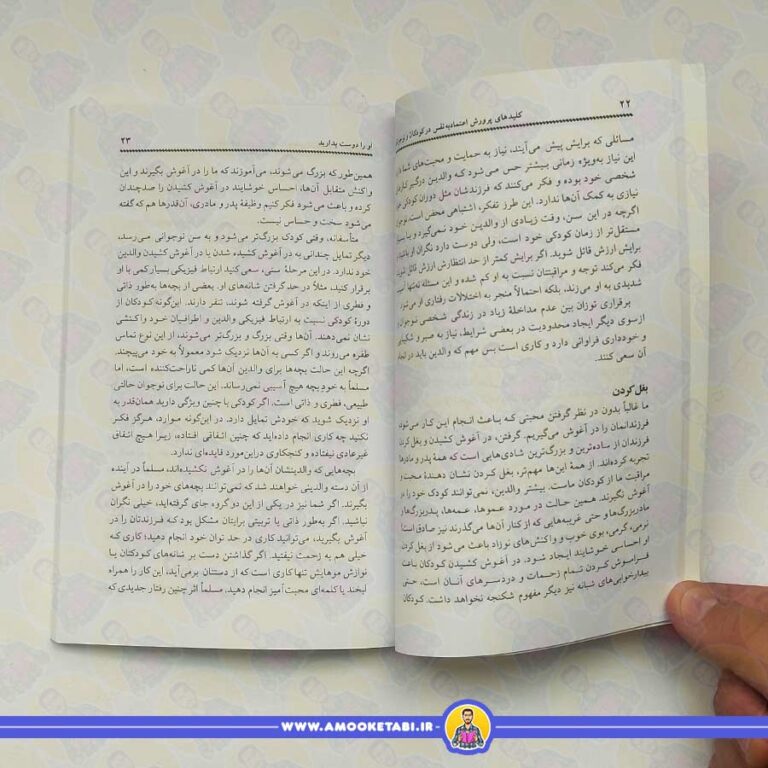 ۲۲
کلیدهای پرورش اعتمادبه‌نفس در کودکان و نوجوان
مسائلی که برایش پیش می‌آیند، نیاز به حمایت و محبت‌های شما
این نیاز به‌ویژه زمانی بیشتر حس می‌شود که والدین درگیر کار
شخصی خود بوده و فکر می‌کنند که فرزندشان مثل دوران کودکی
نیازی به کمک آن‌ها ندارد. این طرز تفکر، اشتباهی محض است.
اگرچه در این سن، وقت زیادی از والدین خود نمی‌گیرد و
مستقل‌تر از زمان کودکی خود است، ولی دوست دارد نگران او باشید
برایش ارزش قائل شوید. اگر برایش کمتر از حد انتظارش ارزش قائل
فکر می‌کند توجه و مراقبتتان نسبت به او کم شده و این مسئله نه‌تنها
شدیدی به او می‌زند، بلکه احتمالاً منجر به اختلالات رفتاری او می‌شود
برقراری توازن بین عدم مداخلهٔ زیاد در زندگی شخصی نوجوان و
ازسوی دیگر ایجاد محدودیت در بعضی شرایط، نیاز به صبر و
و خودداری فراوانی دارد و کاری است بس مهم که والدین باید در
آن سعی کنند.
بغل کردن
ما غالباً بدون در نظر گرفتن محبتی که باعث انجام این کار می‌شود
فرزندانمان را در آغوش می‌گیریم. گرفتن، در آغوش کشیدن و بغل کردن
فرزندان از ساده‌ترین و بزرگ‌ترین شادی‌هایی است که همهٔ پدر و مادرها
تجربه کرده‌اند. از همهٔ این‌ها مهم‌تر، بغل کردن نشان دهندهٔ محبت و
مراقبت ما از کودکان ماست. بیشتر والدین، نمی‌توانند کودک خود را در
آغوش نگیرند. همین حالت در مورد عموها، عمه‌ها، پدربزرگ‌ها و
مادربزرگ‌ها و حتی غریبه‌هایی که از کنار آن‌ها می‌گذرند نیز صادق است
نرمی، گرمی، بوی خوب و واکنش‌های نوزاد باعث می‌شود از بغل کردن
او احساسی خوشایند ایجاد شود. در آغوش کشیدن کودکان باعث
فراموش کردن تمام زحمات و دردسرهای آنان است، حتی
بیدارخوابی‌های شبانه نیز دیگر مفهوم شکنجه نخواهد داشت. کودکان
او را دوست بدارید
۲۳
همین‌طور که بزرگ می‌شوند، می‌آموزند که ما را در آغوش بگیرند و این
واکنش متقابل آن‌ها، احساس خوشایند در آغوش کشیدن را صدچندان
کرده و باعث می‌شود فکر کنیم وظیفهٔ پدر و مادری، آن‌قدرها هم که گفته
می‌شود سخت و حساس نیست.
متأسفانه، وقتی کودک بزرگ‌تر می‌شود و به سن نوجوانی می‌رسد،
دیگر تمایل چندانی به در آغوش کشیده شدن یا در آغوش کشیدن والدین
خود ندارد. در این مرحلهٔ سنی، سعی کنید ارتباط فیزیکی بسیار کمی با او
برقرار کنید، مثلاً در حد گرفتن شانه‌های او. بعضی از بچه‌ها به‌طور ذاتی
و فطری از اینکه در آغوش گرفته شوند، تنفر دارند. این‌گونه کودکان از
دورهٔ کودکی نسبت به ارتباط فیزیکی والدین و اطرافیان خود واکنشی
نشان نمی‌دهند. آن‌ها وقتی بزرگ و بزرگ‌تر می‌شوند، از این نوع تماس
طفره می‌روند و اگر کسی به آن‌ها نزدیک شود معمولاً به خود می‌پیچند.
اگرچه این حالت بچه‌ها برای والدین آن‌ها کمی ناراحت‌کننده است، اما
مسلماً به خود بچه هیچ آسیبی نمی‌رساند. این حالت برای نوجوان حالتی
طبیعی، فطری و ذاتی است. اگر کودکی با چنین ویژگی دارید همان‌قدر به
او نزدیک شوید که خودش تمایل دارد. در این‌گونه موارد، هرگز فکر
نکنید چه کاری انجام داده‌اید که چنین اتفاقی افتاده، زیرا هیچ اتفاق
غیرعادی نیفتاده و کنجکاوی در این مورد فایده‌ای ندارد.
بچه‌هایی که والدینشان آن‌ها را در آغوش نکشیده‌اند، مسلماً در آینده
از آن دسته والدینی خواهند شد که نمی‌توانند بچه‌های خود را در آغوش
بگیرند. اگر شما نیز در یکی از این دو گروه جای گرفته‌اید، خیلی نگران
نباشید. اگر به‌طور ذاتی یا تربیتی برایتان مشکل بود که فرزندتان را در
آغوش بگیرید، می‌توانید کاری در حد توان خود انجام دهید؛ کاری که
خیلی هم به زحمت نیفتید. اگر گذاشتن دست بر شانه‌های کودکتان یا
نوازش موهایش تنها کاری است که از دستتان برمی‌آید، این کار را همراه
لبخند یا کلمه‌ای محبت آمیز انجام دهید. مسلماً اثر چنین رفتار جدیدی که
WWW.AMOOKETABI.IR